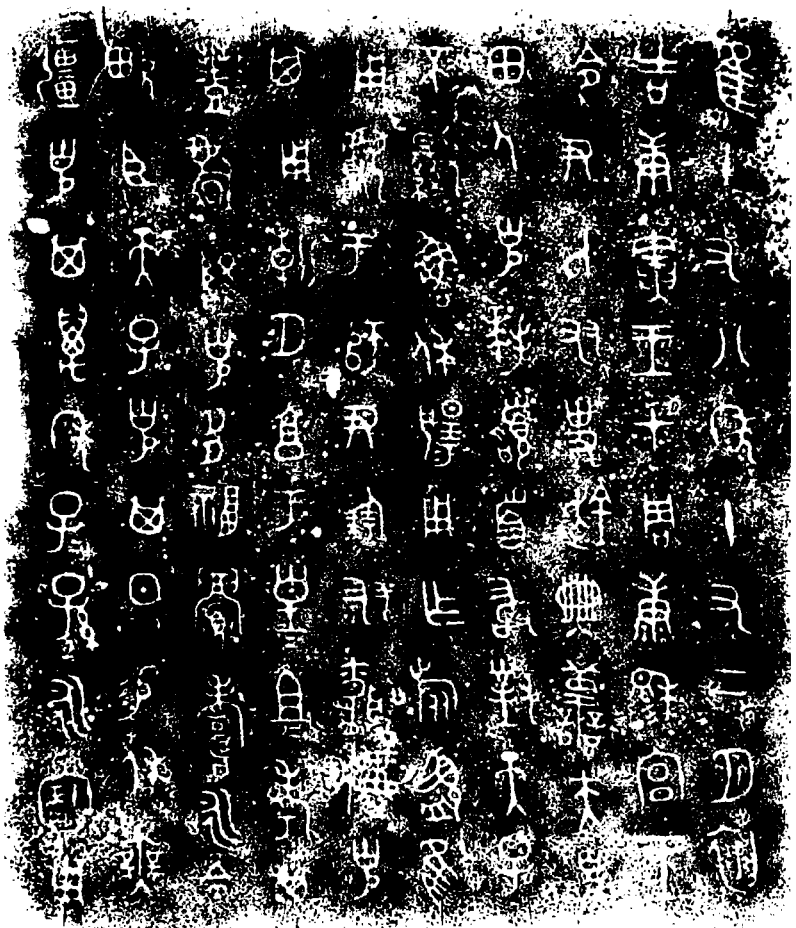 隹十又八年十又二月初
吉庚寅王才周康穆宮王
令尹氏友史趛典善夫克
田人克拜稽首敢對天子
不顯魯休揚用乍旅盨隹
用獻于師尹朋友婚遘克
其用朝夕享于皇且考皇且考其
數數降克多福眉壽永令
畯臣天子克其日易休無
疆克其萬年子子孫孫永寶用